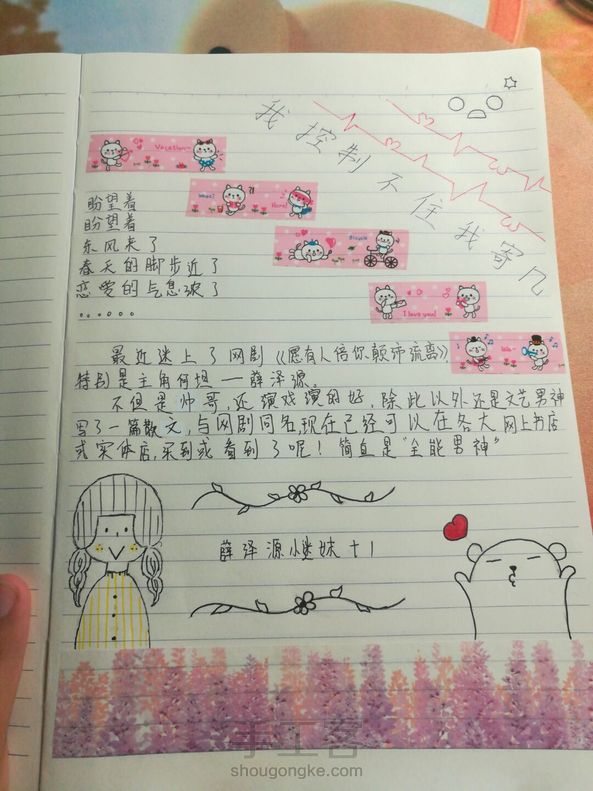 我控制不住我寄几
Vacation~
What?
Hero!
Bicycle
I love you!
盼望着
盼望着
东风来了
春天的脚步近了
恋爱的气息浓了
......
最近迷上了网剧《愿有人陪你颠沛流离》
特别是主角何坦——薛泽源。
不但是帅哥,还演戏演的好,除此以外还是文艺男神
写了一篇散文,与网剧同名,现在已经可以在各大网上书店
或实体店,买到或看到了呢!简直是"全能男神"
薛泽源小迷妹+1
手工客
shougongke.com